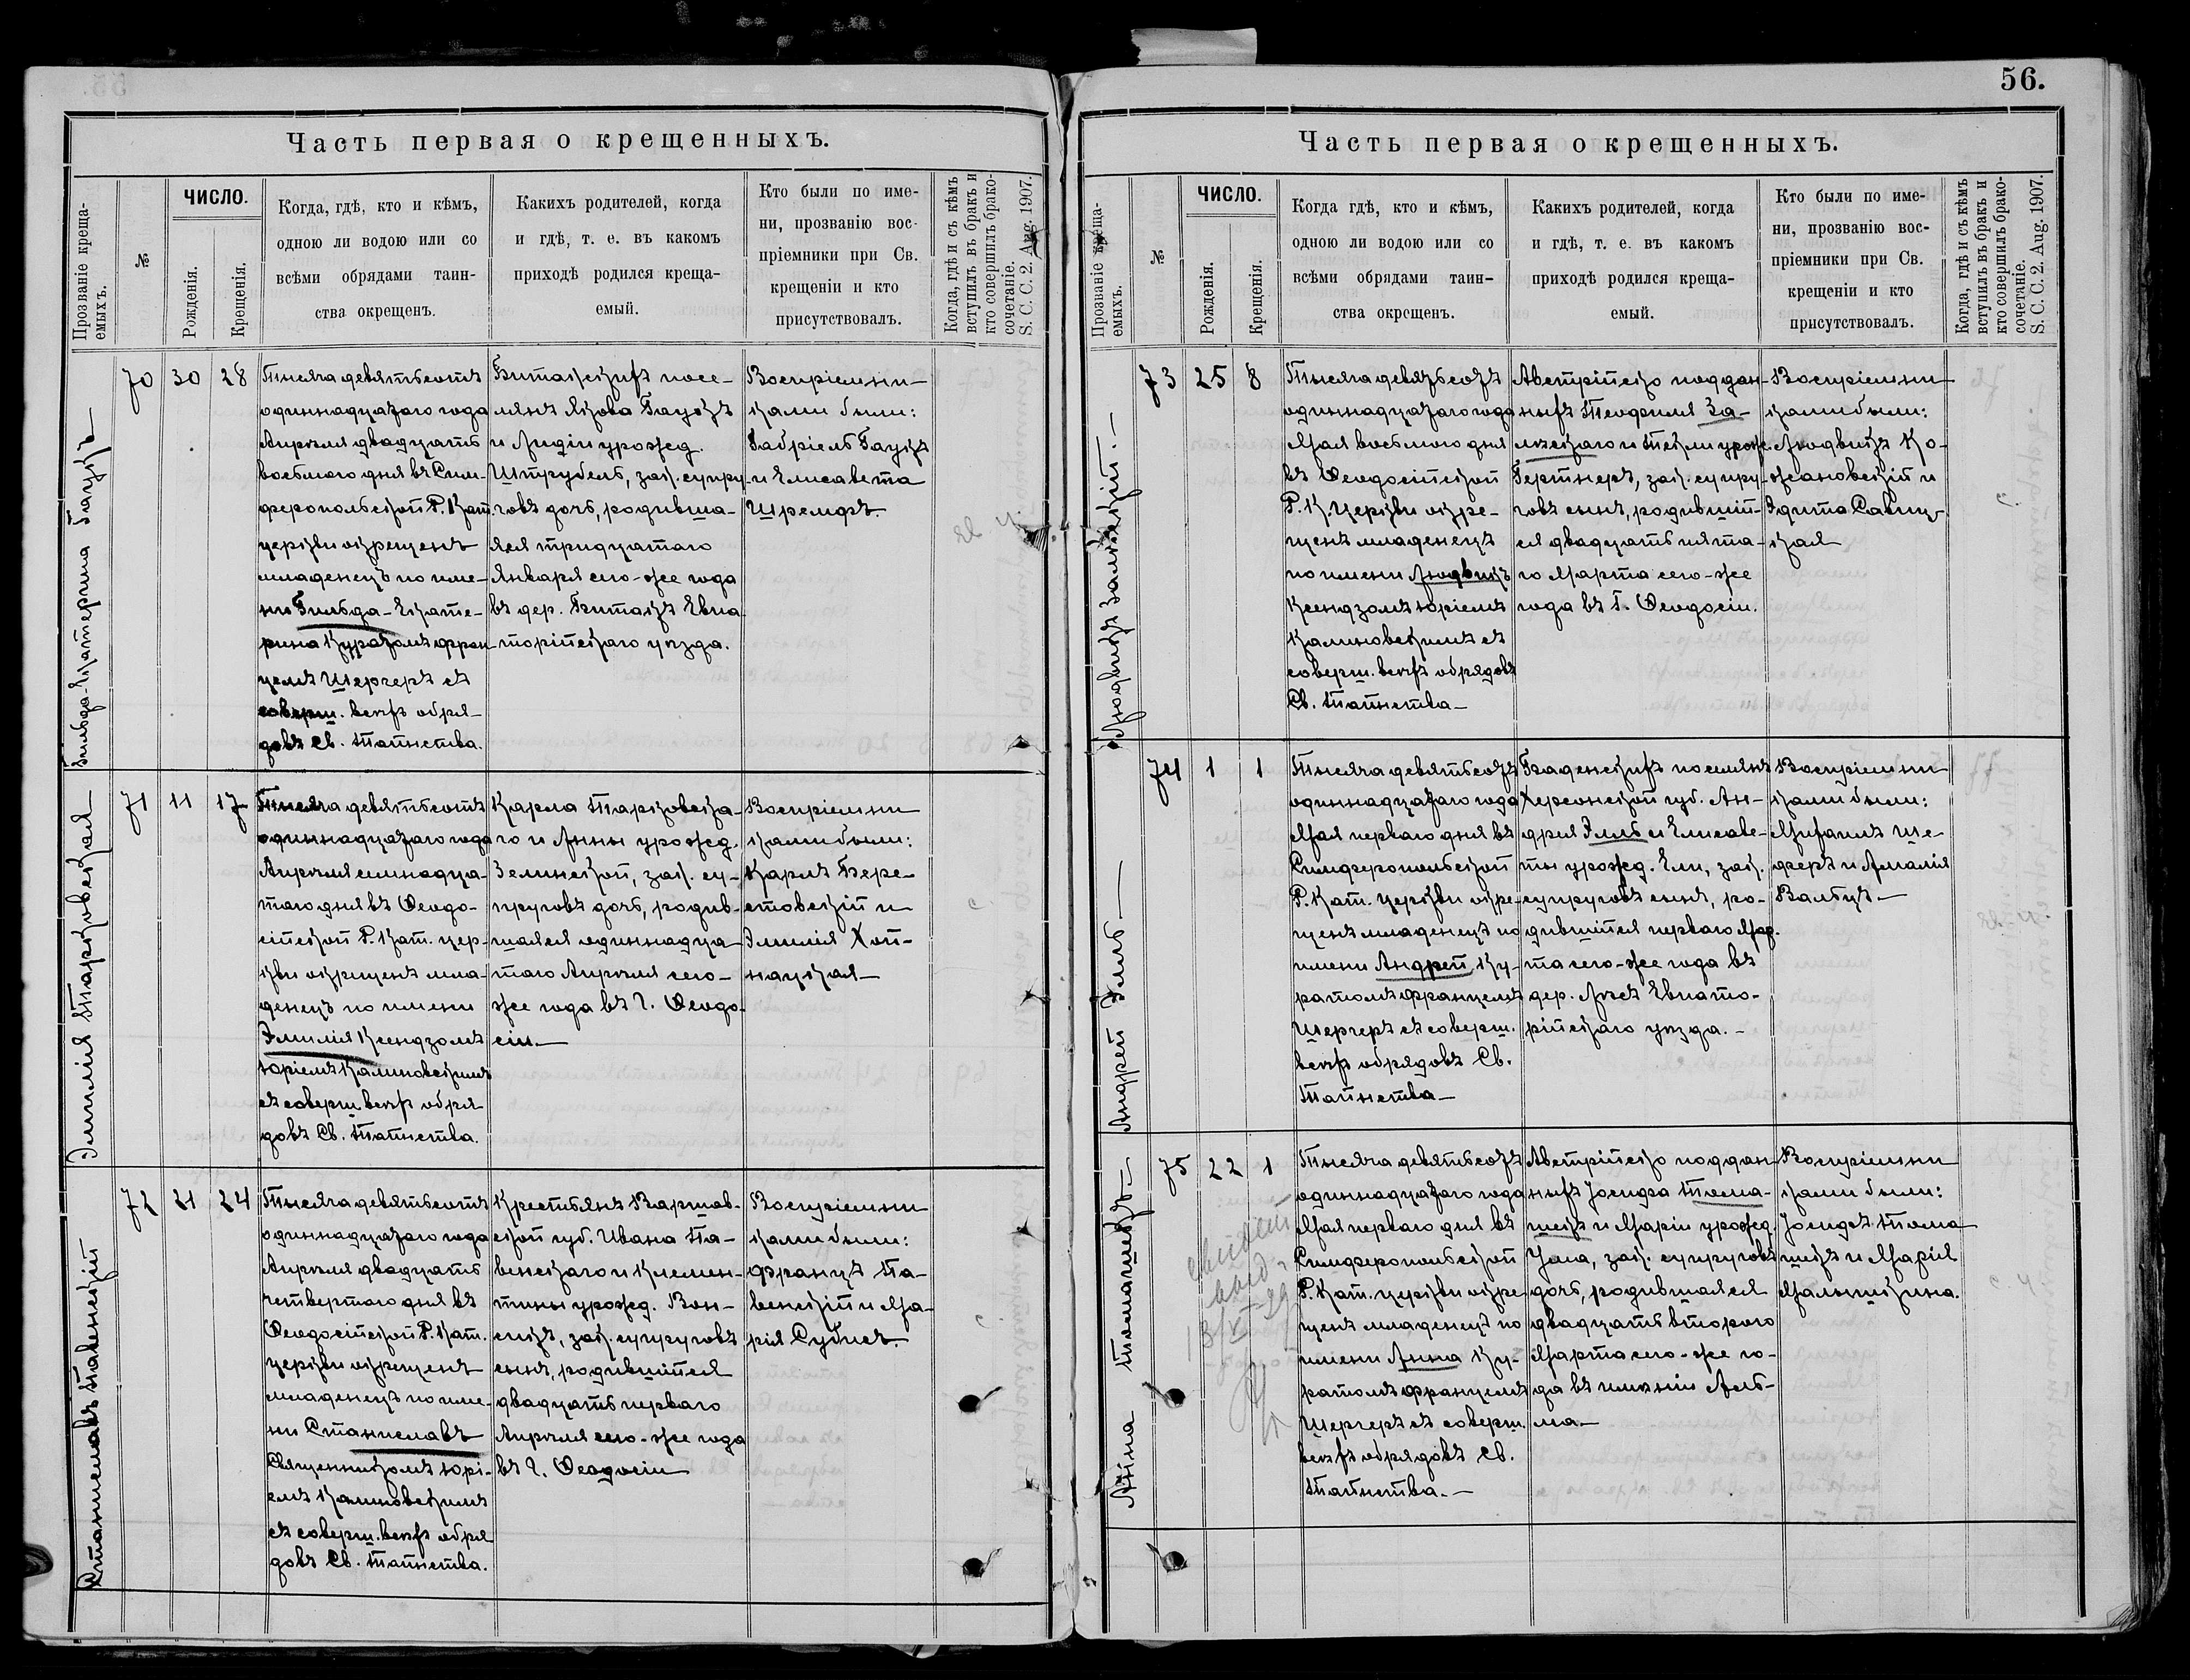 56.
Часть первая о крещенныхъ.
Прозваніе креща-
емыхъ.
№
ЧИСЛО.
Рожденія.
Крещенія.
Когда, гдѣ, кто и кѣмъ,
одною ли водою или со
всѣми обрядами таин-
ства окрещенъ.
Какихъ родителей, когда
и гдѣ, т. е. въ какомъ
приходѣ родился креща-
емый.
Кто были по име-
ни, прозванію вос-
пріемники при Св.
крещеніи и кто
присутствовалъ.
Когда, гдѣ и съ кѣмъ
вступилъ въ бракъ и
кто совершилъ брако-
сочетаніе.
S. C. C. 2. Aug. 1907.
Гильда-Екатерина Гаукъ
70
30
28
Тысяча девятьсотъ
одиннадцатаго года
Апрѣля двадцать
восьмого дня въ Сим-
феропольской Р. Кат.
церкви окрещенъ
младенецъ по име-
ни Гильда-Екате-
рина Куратомъ Фран-
цемъ Шерреръ съ
соверш. всѣхъ обря-
довъ Св. Таинства.
Битакскихъ посе-
лянъ Якова Гаукъ
и Лидіи урожд.
Штрубель, зак. супру-
говъ дочь, родивша-
яся тридцатаго
Января сего-же года
въ дер. Битакъ Евпа-
торійскаго уѣзда.
Воспріемни-
ками были:
Габріель Гаукъ
и Елисавета
Шремфъ.
Эмилія Тарковская
71
11
17
Тысяча девятьсотъ
одиннадцатаго года
Апрѣля семнадца-
таго дня въ Ѳеодо-
сійской Р. Кат. цер-
кви окрещенъ мла-
денецъ по имени
Эмилія Ксендзомъ
Юріемъ Калиновскимъ
съ соверш. всѣхъ обря-
довъ Св. Таинства.
Карла Тарковска-
го и Анны урожд.
Зелинской, зак. су-
пруговъ дочь, родив-
шаяся одиннадца-
таго Апрѣля сего-
же года въ г. Ѳеодо-
сіи.
Воспріемни
ками были:
Карлъ Бере-
стовскій и
Эмилія Хоп-
нацкая
Станиславъ Павенскій
72
21
24
Тысяча девятьсотъ
одиннадцатаго года
Апрѣля двадцать
четвертаго дня въ
Ѳеодосійской Р. Кат.
церкви окрещенъ
младенецъ по име-
ни Станиславъ
Священникомъ Юрі-
емъ Калиновскимъ
съ соверш. всѣхъ обря
довъ Св. Таинства.
Крестьянъ Варшав-
ской губ. Ивана Па-
венскаго и Клемен-
тины урожд. Вон-
сикъ, зак. супруговъ
сынъ, родившійся
двадцать перваго
Апрѣля сего-же года
въ г. Ѳеодосіи
Воспріемни
ками были:
Францъ Па-
венскій и Ма-
рія Субисъ.
Часть первая о крещенныхъ.
Прозваніе креща-
емыхъ.
№
ЧИСЛО.
Рожденія.
Крещенія.
Когда гдѣ, кто и кѣмъ,
одною ли водою или со
всѣми обрядами таин-
ства окрещенъ.
Какихъ родителей, когда
и гдѣ, т. е. въ какомъ
приходѣ родился креща-
емый.
Кто были по име-
ни, прозванію вос-
пріемники при Св.
крещеніи и кто
присутствовалъ.
Когда, гдѣ и съ кѣмъ
вступилъ въ бракъ и
кто совершилъ брако-
сочетаніе.
S. C. C. 2. Aug. 1907.
Людвикъ Залѣскій.
73
25
8
Тысяча девятьсотъ
одиннадцатаго года
Мая восьмого дня
въ Ѳеодосійской
Р. К. церкви окре-
щенъ младенецъ
по имени Людвикъ
Ксендзомъ Юріемъ
Калиновскимъ съ
соверш. всѣхъ обрядовъ
Св. Таинства
Австрійско поддан-
ныхъ Теофиля За-
лѣскаго и Теклы урожд.
Гертнеръ, зак. супру-
говъ сынъ, родившій-
ся двадцать пята-
го Марта сего-же
года въ г. Ѳеодосіи.
Воспріемни
ками были:
Людвикъ Ко-
жановскій и
Эдита Савиц-
кая
Андрей Эмль
74
1
1
Тысяча девятьсотъ
одиннадцатаго года
Мая перваго дня въ
Симферопольской
Р. Кат. церкви окре-
щенъ младенецъ по
имени Андрей, Ку-
ратомъ Францемъ
Шерреръ съ соверш.
всѣхъ обрядовъ Св.
Таинства
Баденскихъ поселянъ
Херсонской губ. Ан-
дрея Эмль и Елисаве-
ты урожд. Ели, зак.
супруговъ сынъ, ро-
дившійся перваго Мар-
та сего-же года въ
дер. Лѣсъ Евпато-
рійскаго уѣзда.
Воспріемни
ками были:
Михаилъ Ше-
феръ и Амалія
Вальцъ
Анна Томашекъ
75
22
1
Тысяча девятьсотъ
одиннадцатаго года
Мая перваго дня въ
Симферопольской
Р. Кат. церкви окре-
щенъ младенецъ по
имени Анна Ку-
ратомъ Францемъ
Шерреръ съ соверш.
всѣхъ обрядовъ Св.
Таинства.
Австрійско поддан
ныхъ Іосифа Тома-
шекъ и Маріи урожд.
Уола, зак. супруговъ
дочь, родившаяся
двадцать второго
Марта сего-же го-
да въ имѣніи Аль-
ма
Воспріемни
ками были:
Іосифъ Тома
шекъ и Марія
Мальшикина.